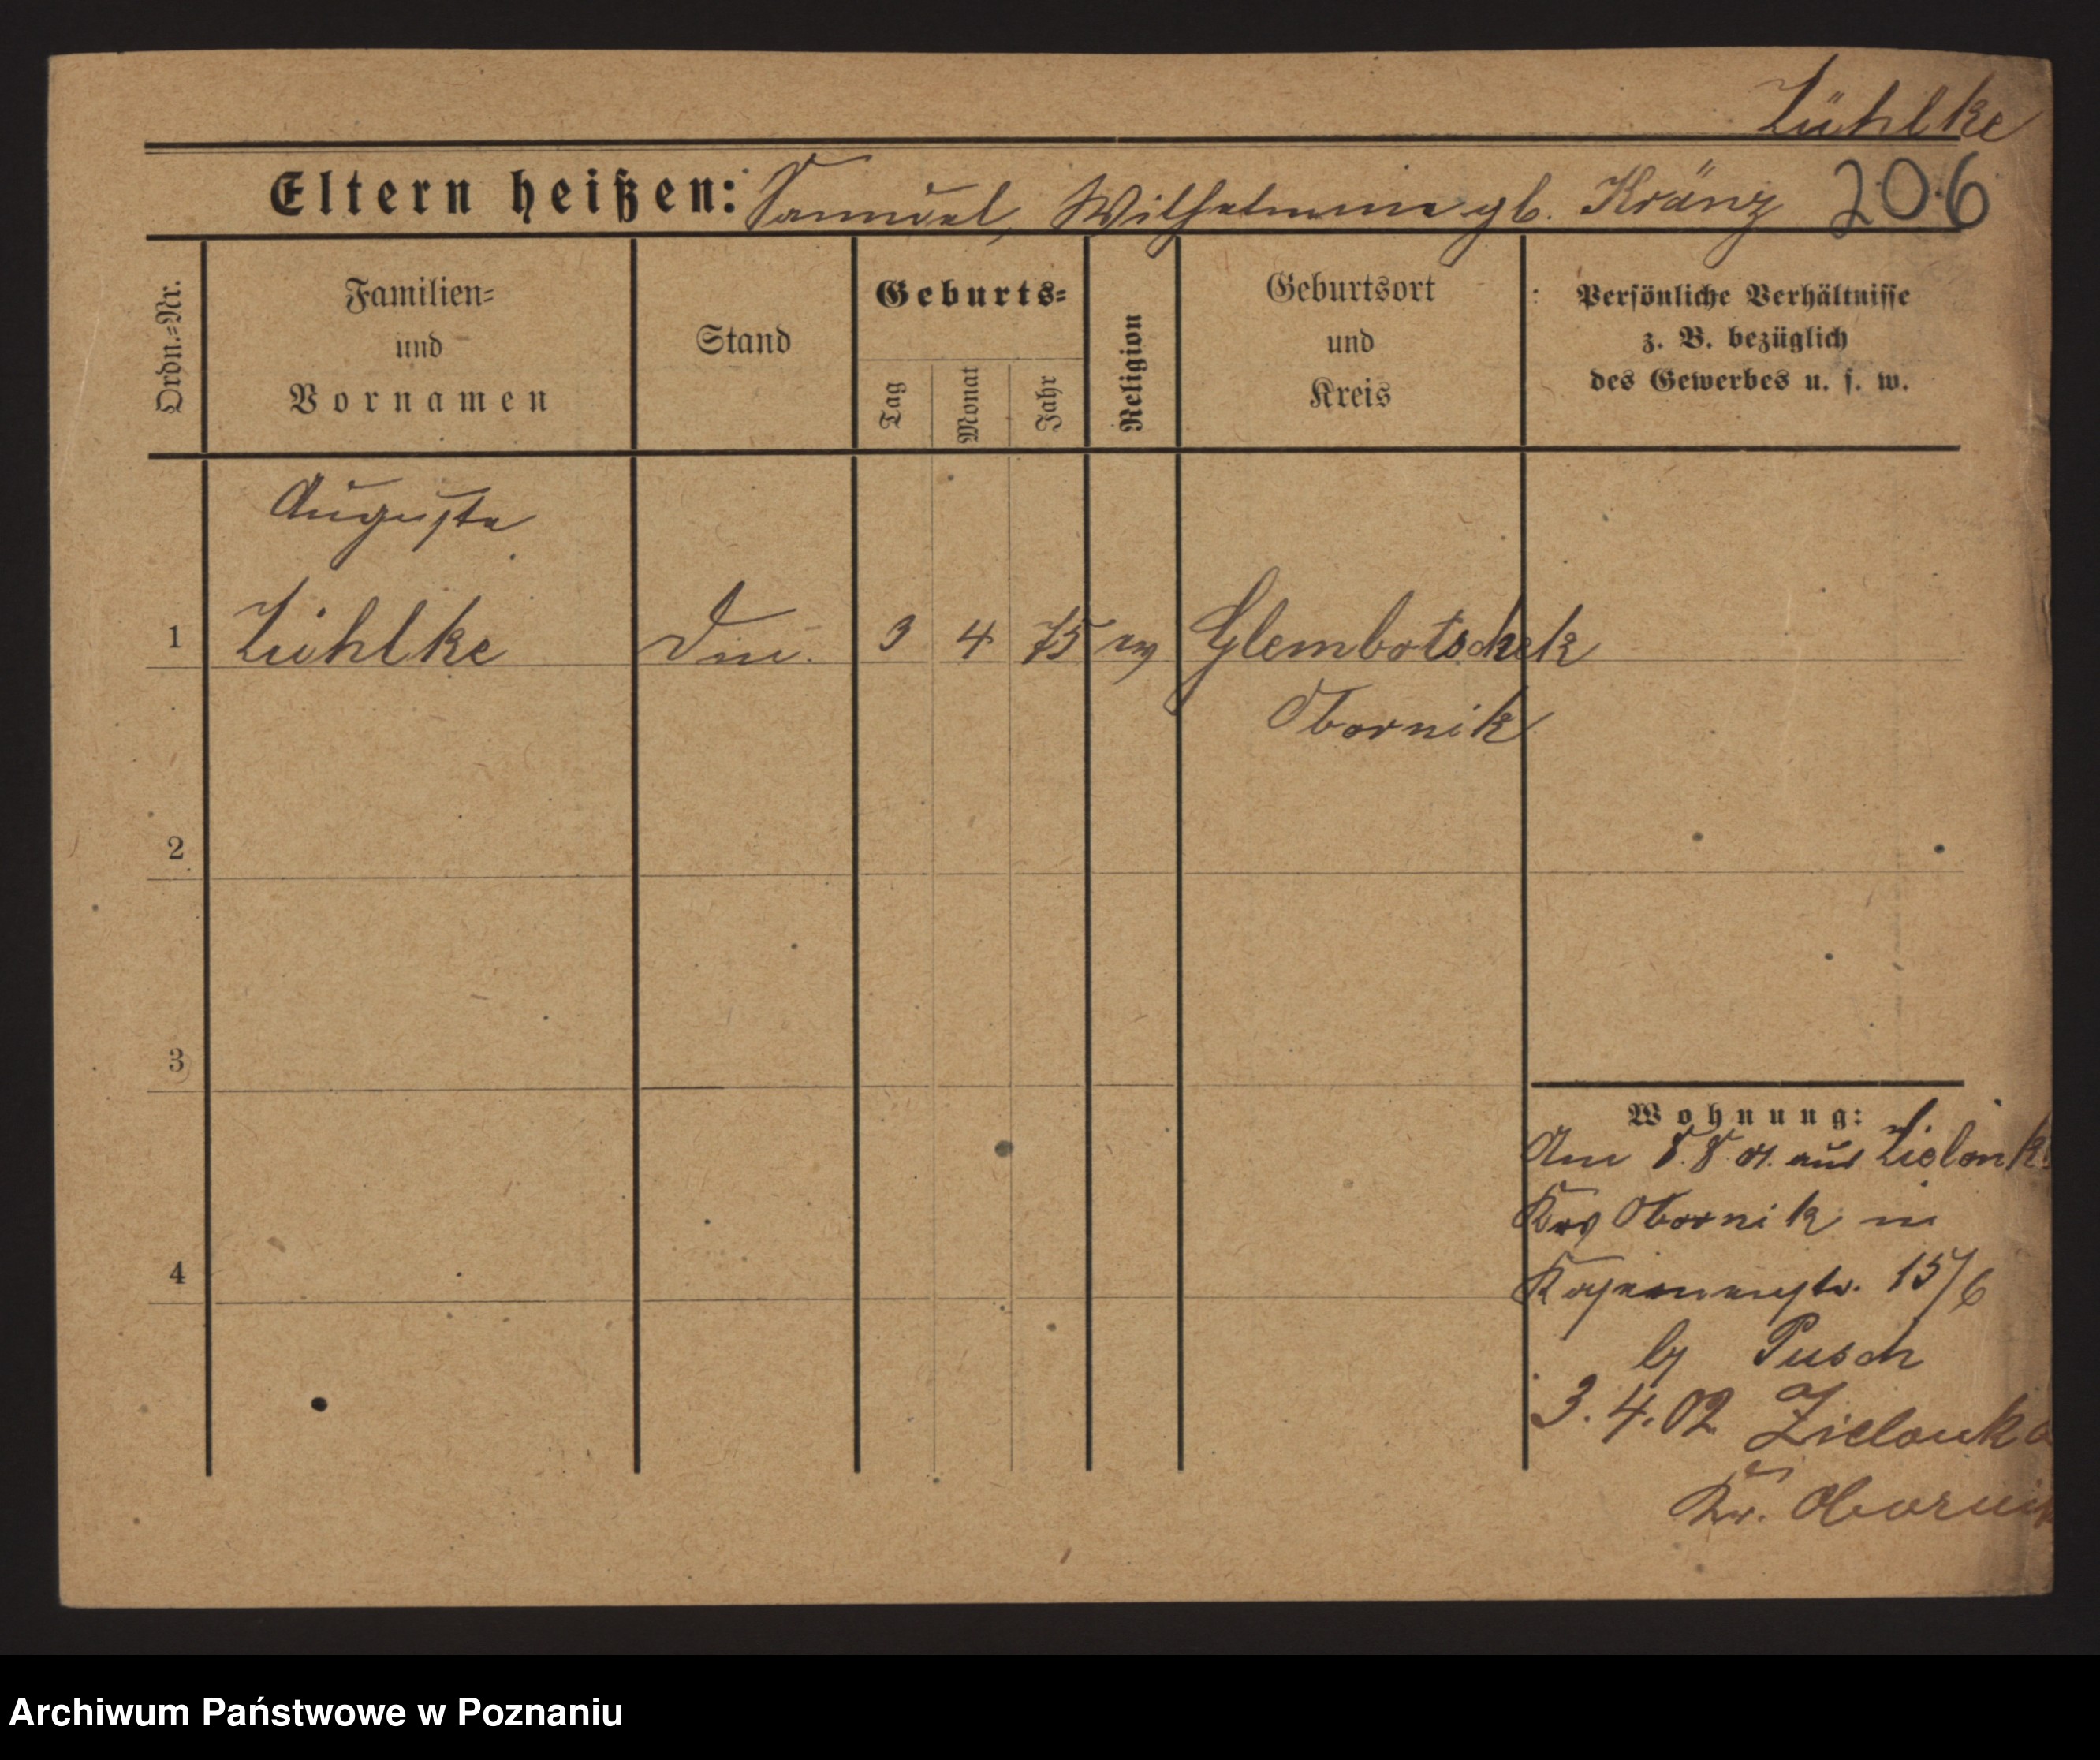 Zühlke
Eltern heißen: Samuel, Wilhelmine gb. Kränz 206
Ordn.=Nr.
Familien=
und
Vornamen
Stand
Geburts=
Tag
Monat
Jahr
Religion
Geburtsort
und
Kreis
Persönliche Verhältnisse
z. B. bezüglich
des Gewerbes u. s. w.
Auguste
1 Zühlke 3 4 75 ev Glembotschek
Obornik
2
3
4
Wohnung:
Am 8.8. 01. aus Zielonka
Krs Obornik in
15/6
by Pusch
3. 4. 02 Zielonka
Kr. Obornik
Archiwum Państwowe w Poznaniu